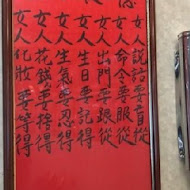 女人說話要盲從
女人命令要服從
女人出門要跟從
女人生日要記得
女人生氣要忍得
女人花錢要捨得
女人化妝要等得